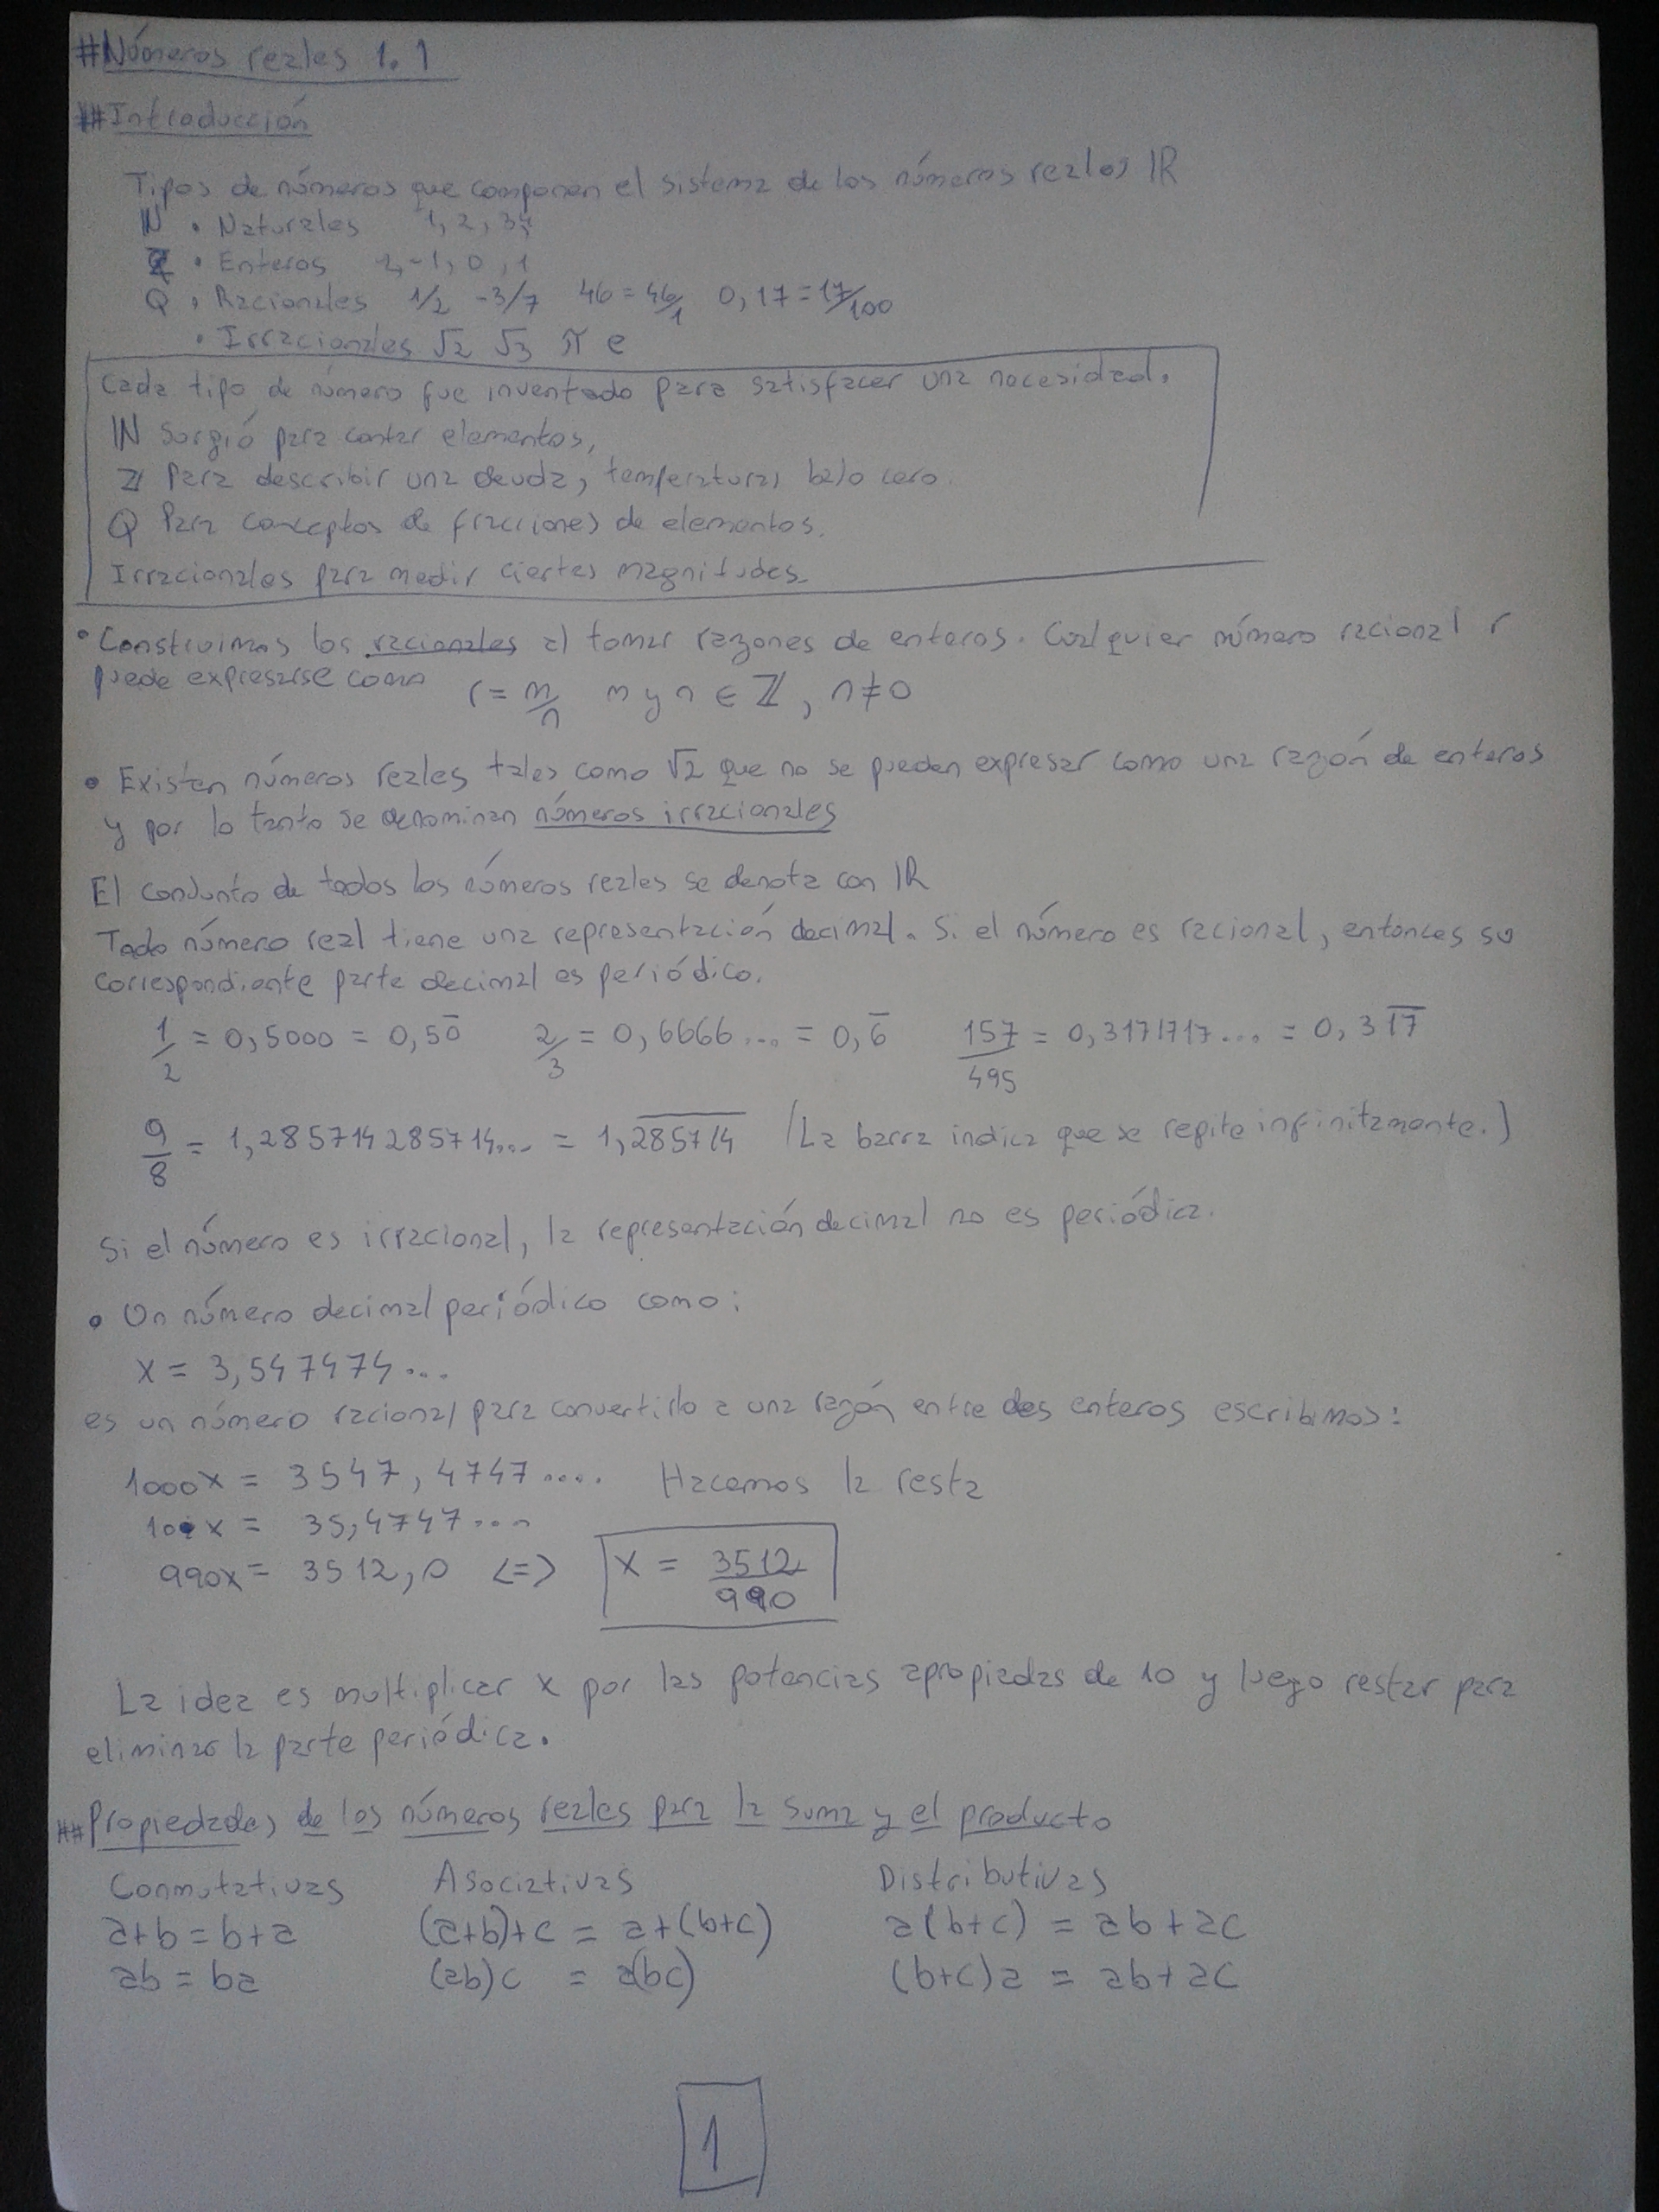 #Números reales 1.1
##Introducción
Tipos de números que componen el sistema de los números reales ℝ
ℕ • Naturales 1, 2, 3,
ℤ • Enteros -1, 0, 1
Q • Racionales 1/2 -3/7 46 = 46/1 0,17 = 17/100
• Irracionales √2 √3 π e
Cada tipo de número fue inventado para satisfacer una necesidad.
ℕ Surgió para contar elementos,
ℤ Para describir una deuda, temperaturas bajo cero.
Q Para conceptos de fracciones de elementos.
Irracionales para medir ciertas magnitudes.
• Construimos los racionales al tomar razones de enteros. Cualquier número racional r
puede expresarse como r = m/n m y n ∈ ℤ, n ≠ 0
• Existen números reales tales como √2 que no se pueden expresar como una razón de enteros
y por lo tanto se denominan números irracionales
El conjunto de todos los números reales se denota con ℝ
Todo número real tiene una representación decimal. Si el número es racional, entonces su
correspondiente parte decimal es periódico.
1/2 = 0,5000 = 0,50̅ 2/3 = 0,6666... = 0,6̅ 157/495 = 0,3171717... = 0,31̅7̅
9/8 = 1,285714285714... = 1,2̅8̅5̅7̅1̅4̅ (La barra indica que se repite infinitamente.)
Si el número es irracional, la representación decimal no es periódica.
• Un número decimal periódico como:
x = 3,547474...
es un número racional para convertirlo a una razón entre dos enteros escribimos:
1000x = 3547,4747.... Hacemos la resta
10x = 35,4747...
990x = 3512,0 <=> x = 3512/990
La idea es multiplicar x por las potencias apropiadas de 10 y luego restar para
eliminar la parte periódica.
##Propiedades de los números reales para la suma y el producto
Conmutativas Asociativas Distributivas
a+b = b+a (a+b)+c = a+(b+c) a(b+c) = ab+ac
ab = ba (ab)c = a(bc) (b+c)a = ab+ac
1